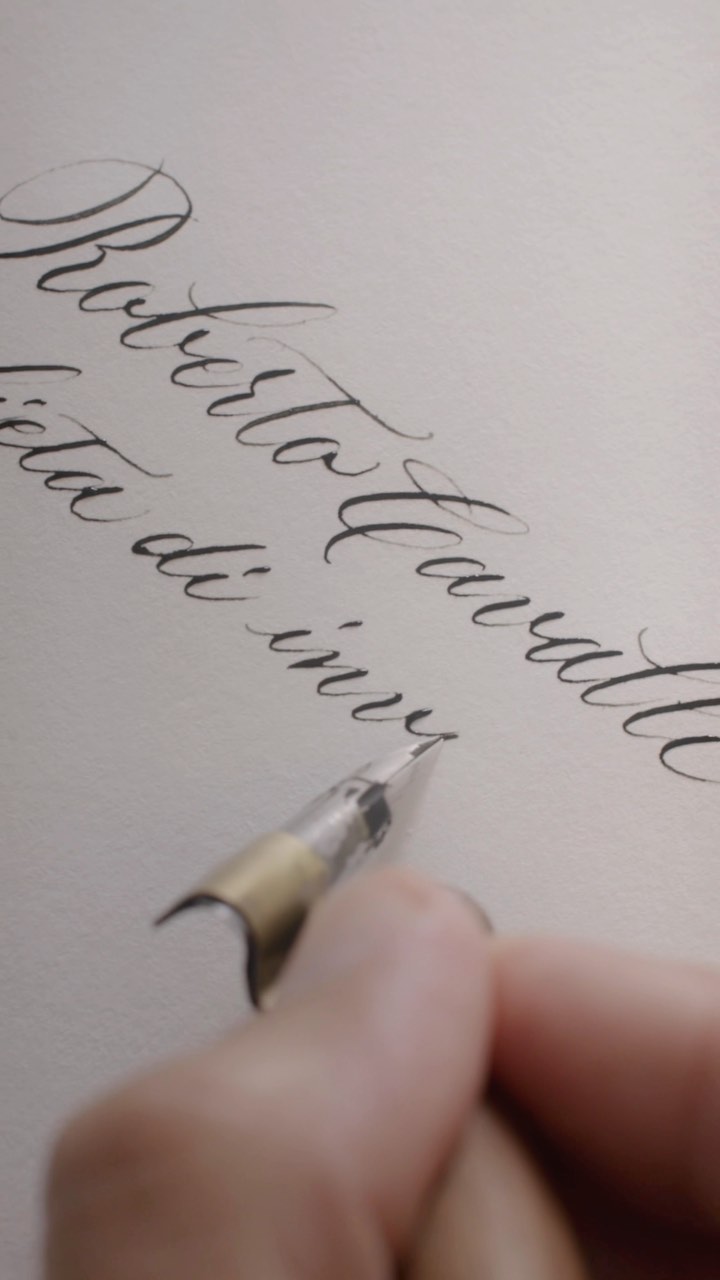 Roberto Cavall
ieta di inv